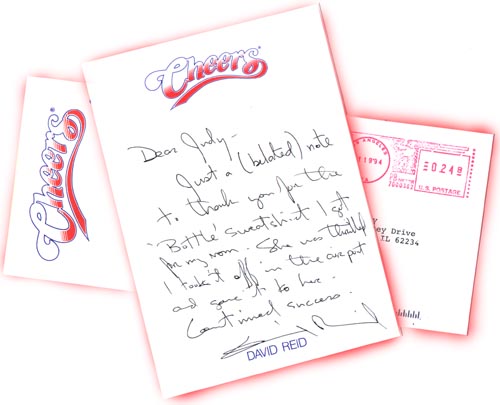 Cheers®
Dear Judy-
Just a (belated) note
to thank you for the
"Bottle" sweatshirt I got
for my mom. She was thrilled
I took it off in the airport
and gave it to her.
Continued success-
DAVID REID
Cheers®
ANGELES
1 1994
≡0.24⁸
U.S. POSTAGE
y
ey Drive
IL 62234